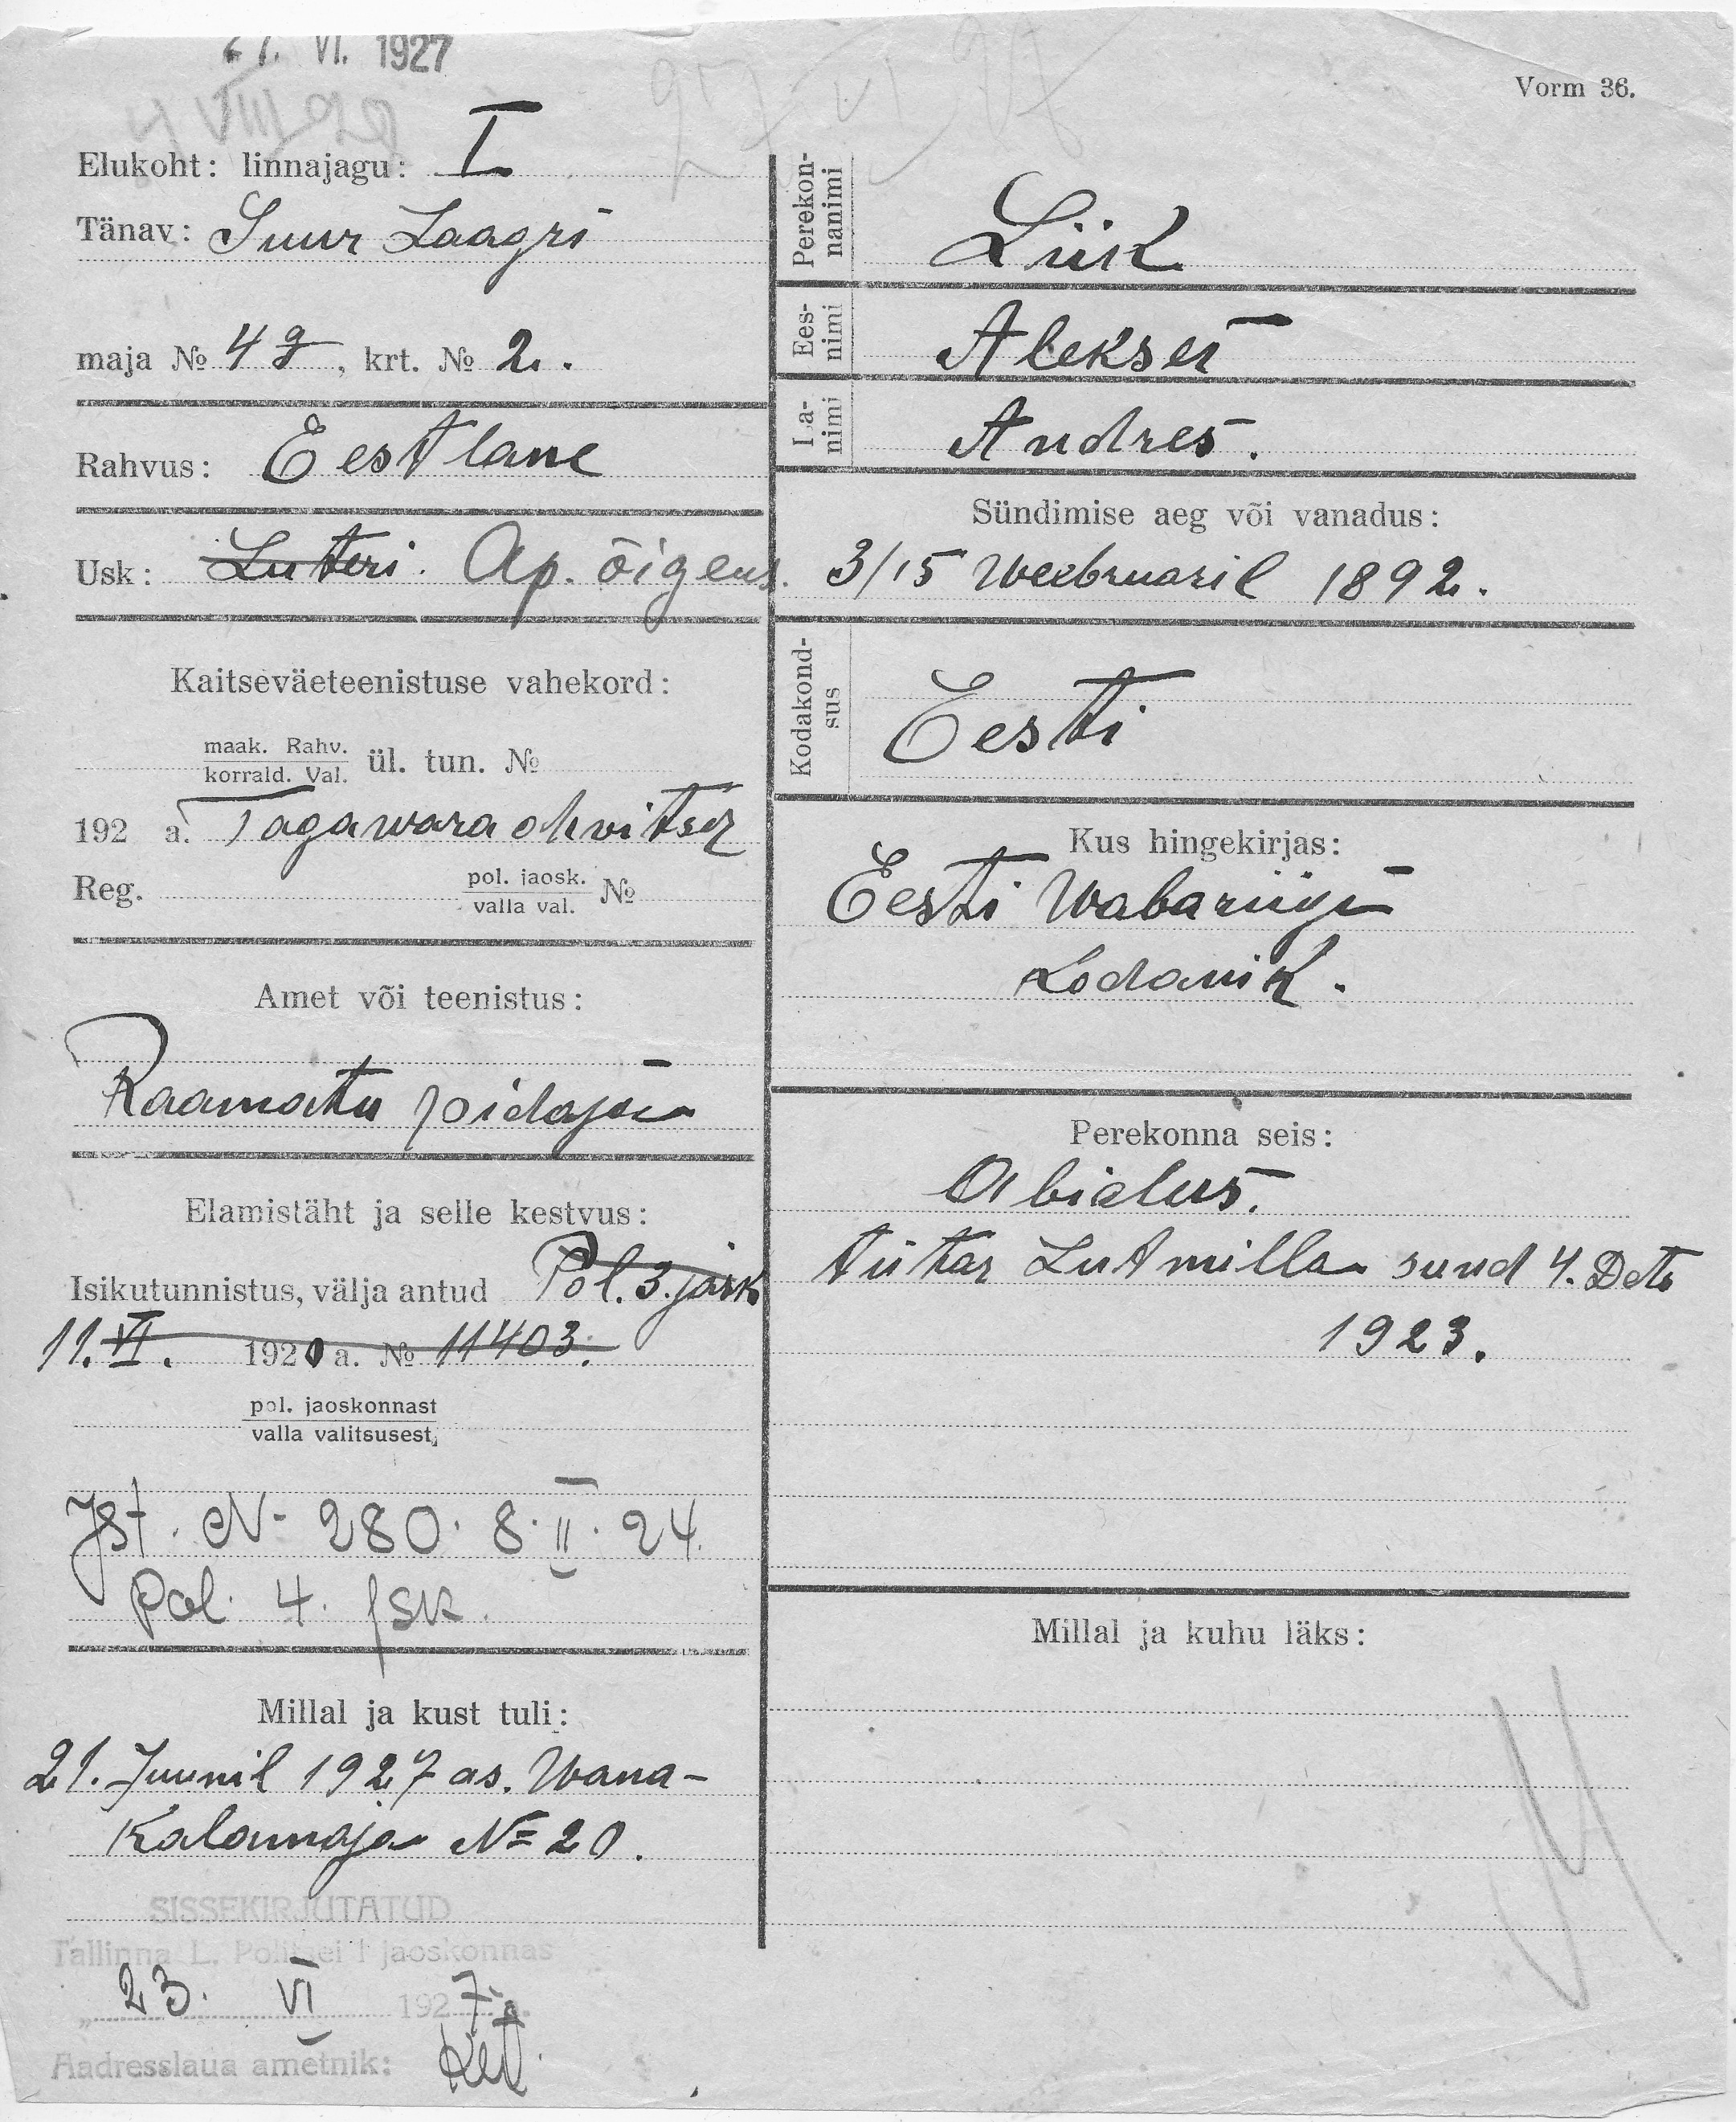 27. VI. 1927
4 VIII 29
27 VI 27
Vorm 36.
Elukoht: linnajagu: I
Tänav: Suur Laagri
maja № 47, krt. № 2.
Rahvus: Eestlane
Usk: Luteri. Ap. õigeus.
Kaitseväeteenistuse vahekord:
maak. Rahv.
korrald. Val. ül. tun. №
192 a. Tagawara ohvitser
Reg. pol. jaosk.
valla val. №
Amet või teenistus:
Raamatu pidaja
Elamistäht ja selle kestvus:
Isikutunnistus, välja antud Pol. 3. jaosk
11. VI. 1920 a. № 11403.
pol. jaoskonnast
valla valitsusest,
Jst. N- 280. 8. II. 24.
Pol. 4. jsk.
Millal ja kust tuli:
21. Juunil 1927 as. Wana-
Kalamaja N= 20.
SISSEKIRJUTATUD
Tallinna L. Politsei I jaoskonnas
„23. VI 1927 a.
Aadresslaua ametnik:
Perekon-
nanimi
Liik
Ees-
nimi
Aleksei
Isa-
nimi
Andres.
Sündimise aeg või vanadus:
3/15 Weebruaril 1892.
Kodakond-
sus
Eesti
Kus hingekirjas:
Eesti Wabariigi
kodanik.
Perekonna seis:
Abielus.
tütar Lutmilla sünd 4. Dets
1923.
Millal ja kuhu läks: